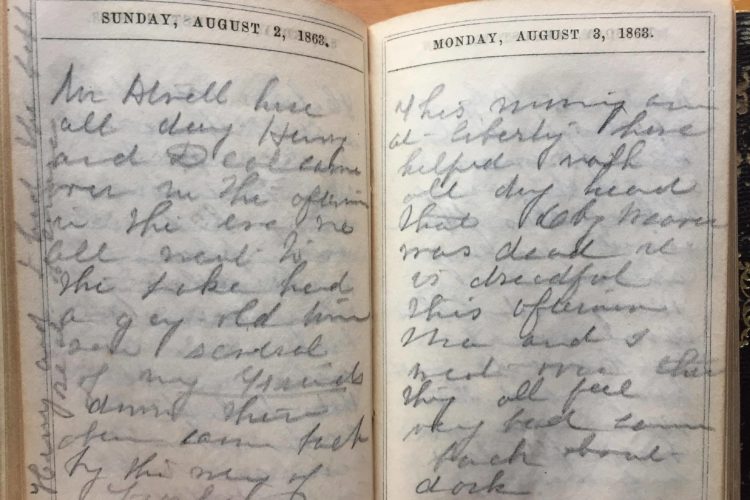 SUNDAY, AUGUST 2, 1863.
Mr Atwell here
all day Henry
and D came
over in the afternoon
in the eve we
all went to
the Lake had
a gay old time
saw several
of my friends
down there
came back
by the way of
MONDAY, AUGUST 3, 1863.
This morning am
at liberty have
helped wash
all day heard
that Weaver
was dead it
is dreadful
This afternoon
Ma and I
went over there
they all feel
very bad came
back about
dark
Henry and I had the